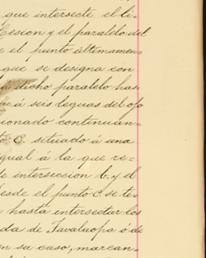 que intersecte el le-
Cesion y el paralelo del
e el punto últimamen
que se designa con
dicho paralelo has
á seis leguas del ojo
cionado continuan-
to C. situado á una
gual á la que re-
de interseccion b, y el
desde el punto C. se ti-
hasta intersectar los
da de Tavaluopa ó de
en su caso, marcan-